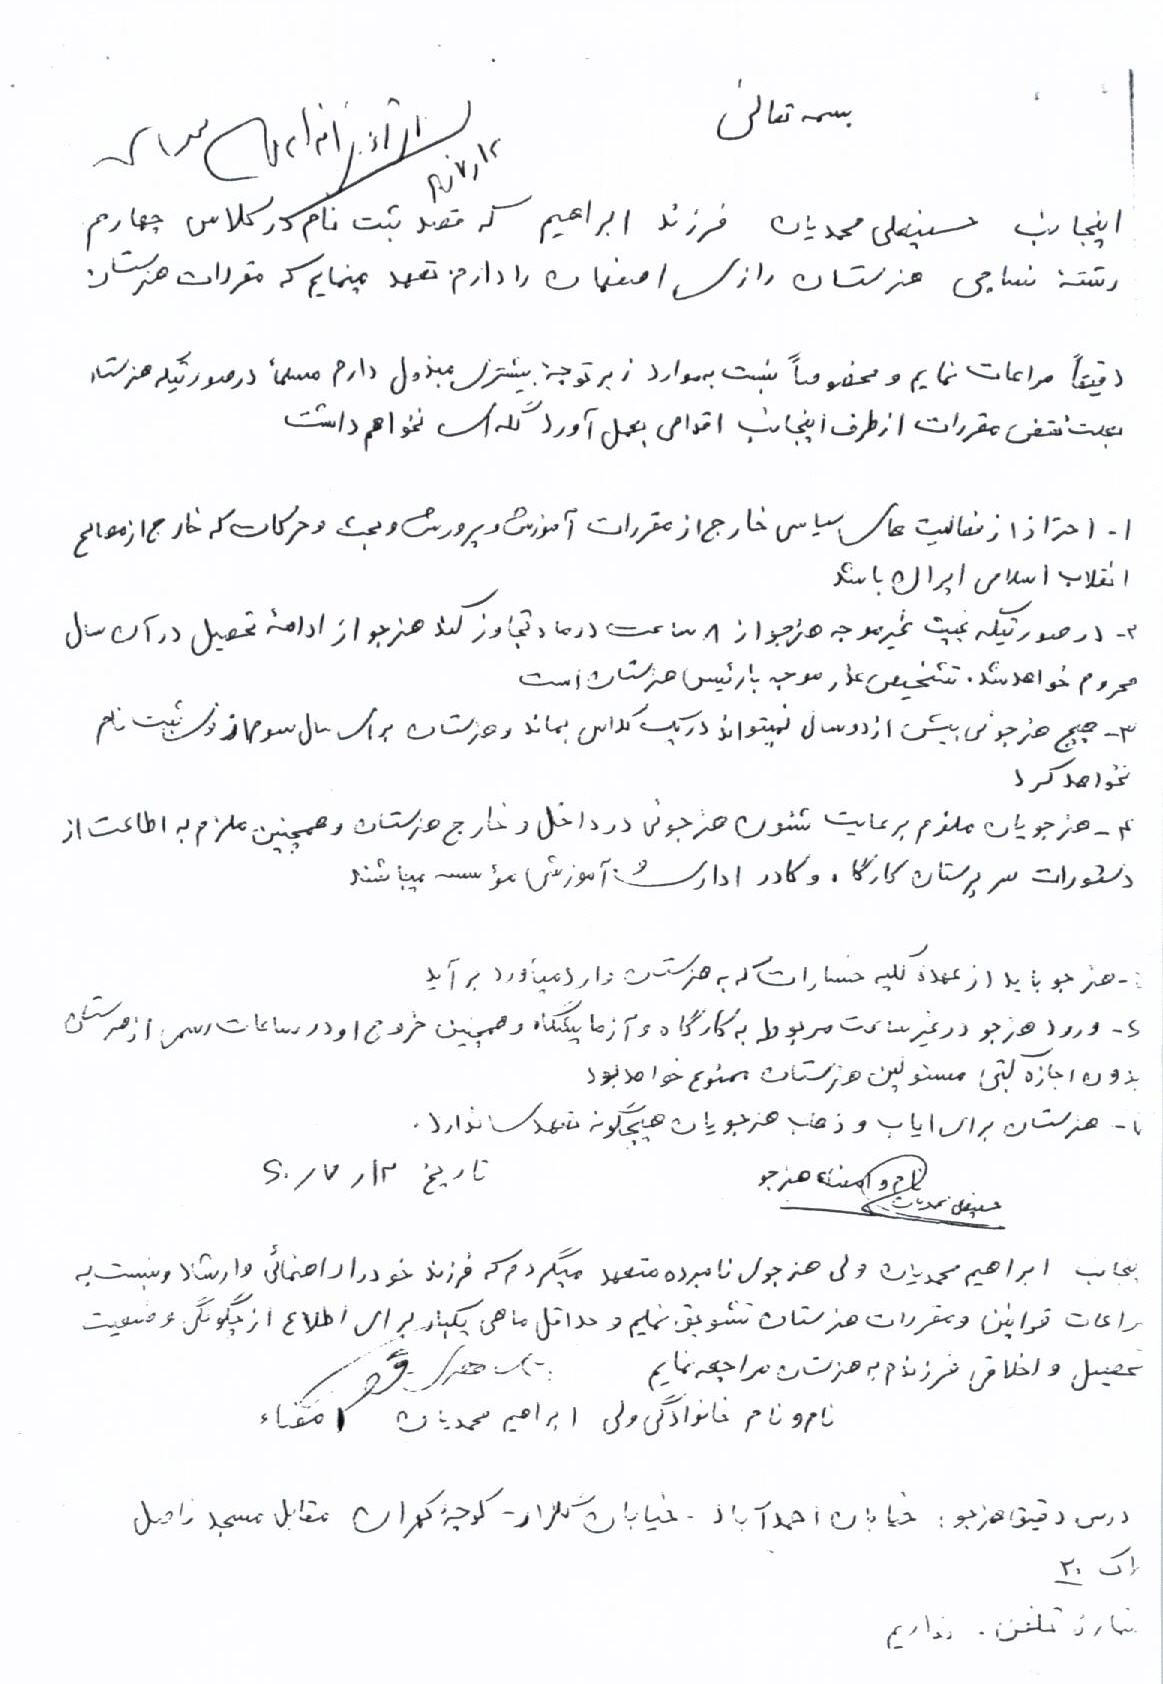 بسمه تعالی
اینجانب حسینعلی محمدیان فرزند ابراهیم که قصد ثبت نام در کلاس چهارم
رشتهٔ نساجی هنرستان رازی اصفهان را دارم تعهد مینمایم که مقررات هنرستان
دقیقاً مراعات نمایم و مخصوصاً نسبت به موارد زیر توجهٔ بیشتری مبذول دارم مسلماً در صورتیکه هنرستان
بعلت نقض مقررات از طرف اینجانب اقدامی بعمل آورد گله‌ای نخواهم داشت
۱- احتراز از فعالیت های سیاسی خارج از مقررات آموزش و پرورش و بحث و حرکات که خارج از مصالح
انقلاب اسلامی ایران باشد
۲- در صورتیکه غیبت غیر موجه هنرجو از ۸ ساعت در ماه تجاوز کند هنرجو از ادامهٔ تحصیل در آن سال
محروم خواهد شد. تشخیص عذر موجه با رئیس هنرستان است
۳- هیچ هنرجوئی بیش از دو سال نمیتواند در یک کلاس بماند و هنرستان برای سال سوم از وی ثبت نام
نخواهد کرد
۴- هنرجویان ملزم برعایت شئون هنرجوئی در داخل و خارج هنرستان و همچنین ملزم به اطاعت از
دستورات سرپرستان کارگاه و کادر اداری و آموزشی مؤسسه میباشند
- هنرجو باید از عهدهٔ کلیه خسارات که به هنرستان وارد میآورد برآید
۶- ورود هنرجو در غیر ساعت مربوطه به کارگاه و آزمایشگاه و همچنین خروج او در ساعات رسمی از هنرستان
بدون اجازه کتبی مسئولین هنرستان ممنوع خواهد بود
- هنرستان برای ایاب و ذهاب هنرجویان هیچگونه تعهدی ندارد.
نام و امضاء هنرجو تاریخ ۱۲/۷/۶۰
حسینعلی محمدیان
ینجانب ابراهیم محمدیان ولی هنرجوی نامبرده متعهد میگردم که فرزند خود را راهنمائی و ارشاد و نسبت به
راعات قوانین و مقررات هنرستان تشویق نمایم و حداقل ماهی یکبار برای اطلاع از چگونگی وضعیت
تحصیل و اخلاقی فرزندم به هنرستان مراجعه نمایم
نام و نام خانوادگی ولی ابراهیم محمدیان امضاء
درس دقیق هنرجو: خیابان احمدآباد - خیابان گلزار - کوچهٔ مقابل مسجد
لاک ۲۰
شماره تلفن. نداریم